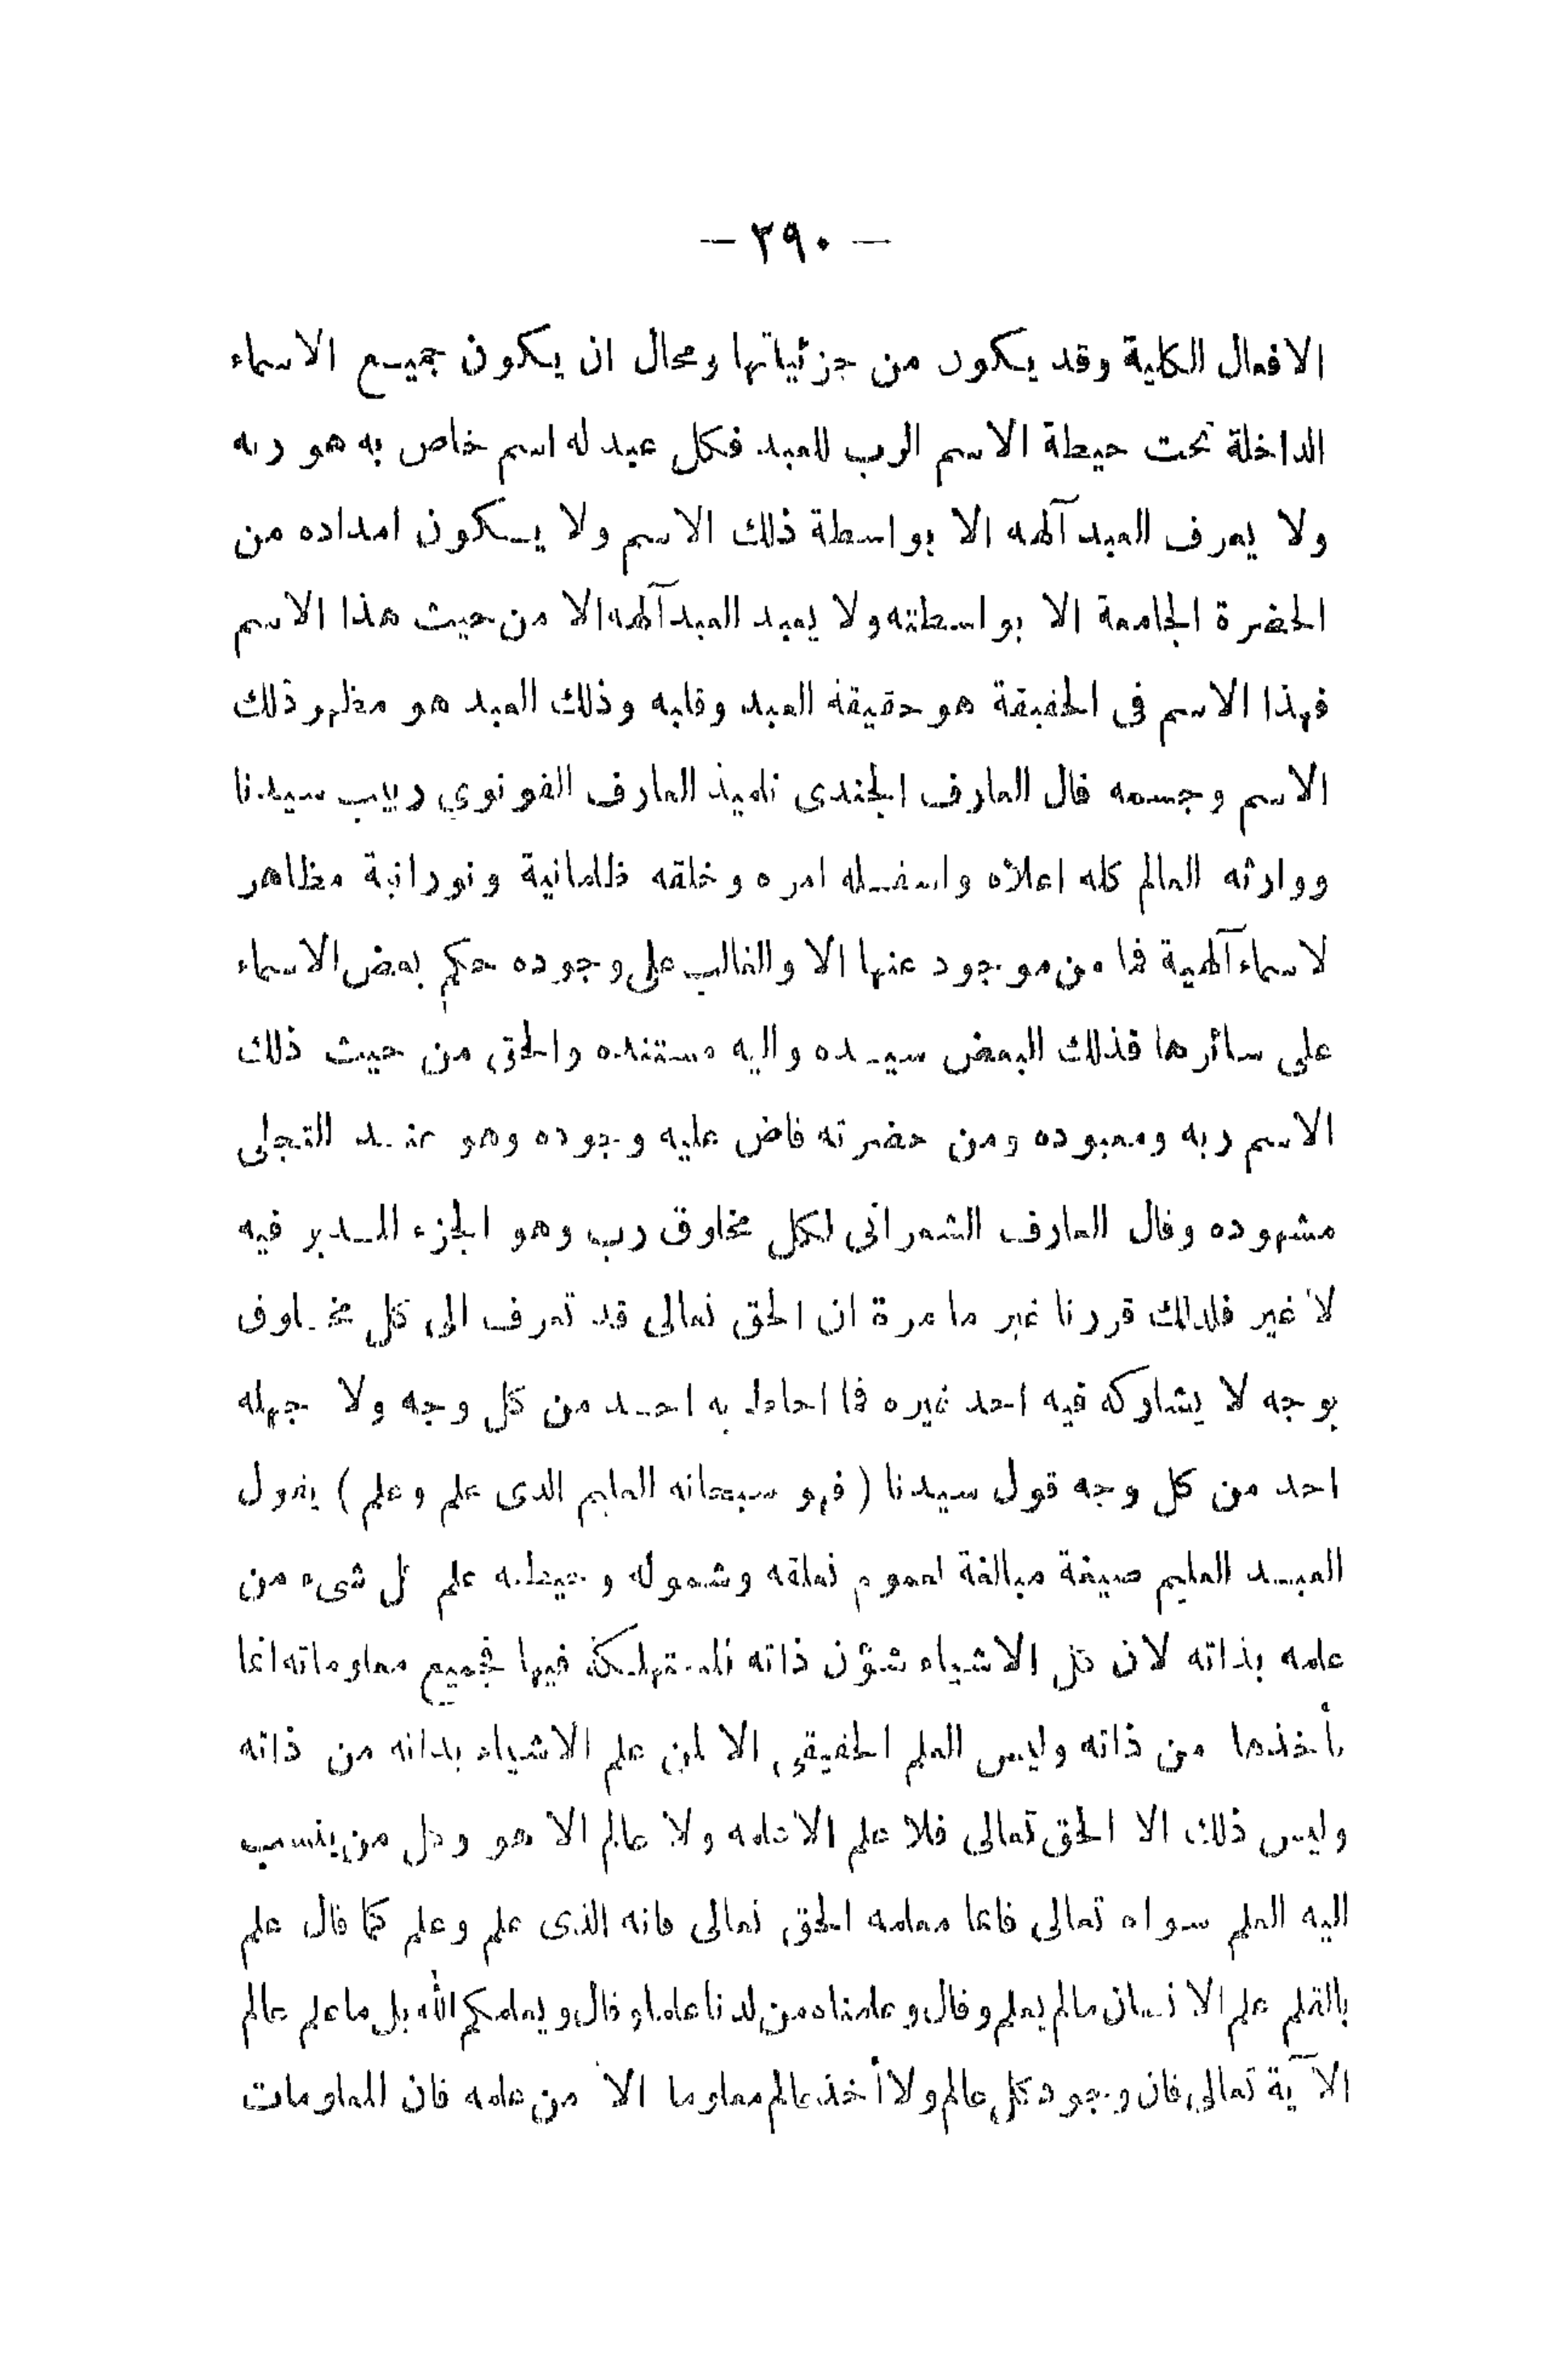 — ٢٩٠ —
الافعال الكلية وقد يكون من جزئياتها ومحال ان يكون جميع الاسماء
الداخلة تحت حيطة الاسم الرب للعبد فكل عبد له اسم خاص به هو ربه
ولا يعرف العبد آلهه الا بواسطة ذلك الاسم ولا يكون امداده من
الحضرة الجامعة الا بواسطته ولا يعبد العبد آلهه الا من حيث هذا الاسم
فهذا الاسم فى الحقيقة هو حقيقة العبد وقلبه وذلك العبد هو مظهر ذلك
الاسم وجسمه قال العارف الجندى تلميذ العارف القونوي ربيب سيدنا
ووارثه العالم كله اعلاه واسفله امره وخلقه ظلمانية ونورانية مظاهر
لاسماء آلهية فما من موجود عنها الا والغالب على وجوده حكم بعض الاسماء
على سائرها فذلك البعض سيده واليه مستنده والحق من حيث ذلك
الاسم ربه ومعبوده ومن حضرته فاض عليه وجوده وهو عند التجلى
مشهوده وقال العارف الشعرانى لكل مخلوق رب وهو الجزء المدبر فيه
لا غير فلذلك قررنا غير ما مرة ان الحق تعالى قد تعرف الى كل مخلوق
بوجه لا يشاركه فيه احد غيره فما احاط به احد من كل وجه ولا جهله
احد من كل وجه قول سيدنا ( فهو سبحانه العليم الذى علم وعلم ) يقول
العبد العليم صيغة مبالغة لعموم تعلقه وشموله وحيطته علم كل شىء من
علمه بذاته لان كل الاشياء شؤن ذاته المستهلكة فيها فجميع معلوماته انما
يأخذها من ذاته وليس العلم الحقيقى الا لمن علم الاشياء بذاته من ذاته
وليس ذلك الا الحق تعالى فلا علم الا علمه ولا عالم الا هو وكل من ينسب
اليه العلم سواه تعالى فانما معلمه الحق تعالى فانه الذى علم وعلم كما قال علم
بالقلم علم الانسان مالم يعلم وقال وعلمناه من لدنا علما وقال ويعلمكم الله بل ما علم عالم
الآية تعالى فان وجود كل عالم ولا أخذ عالم معلوما الا من علمه فان المعلومات